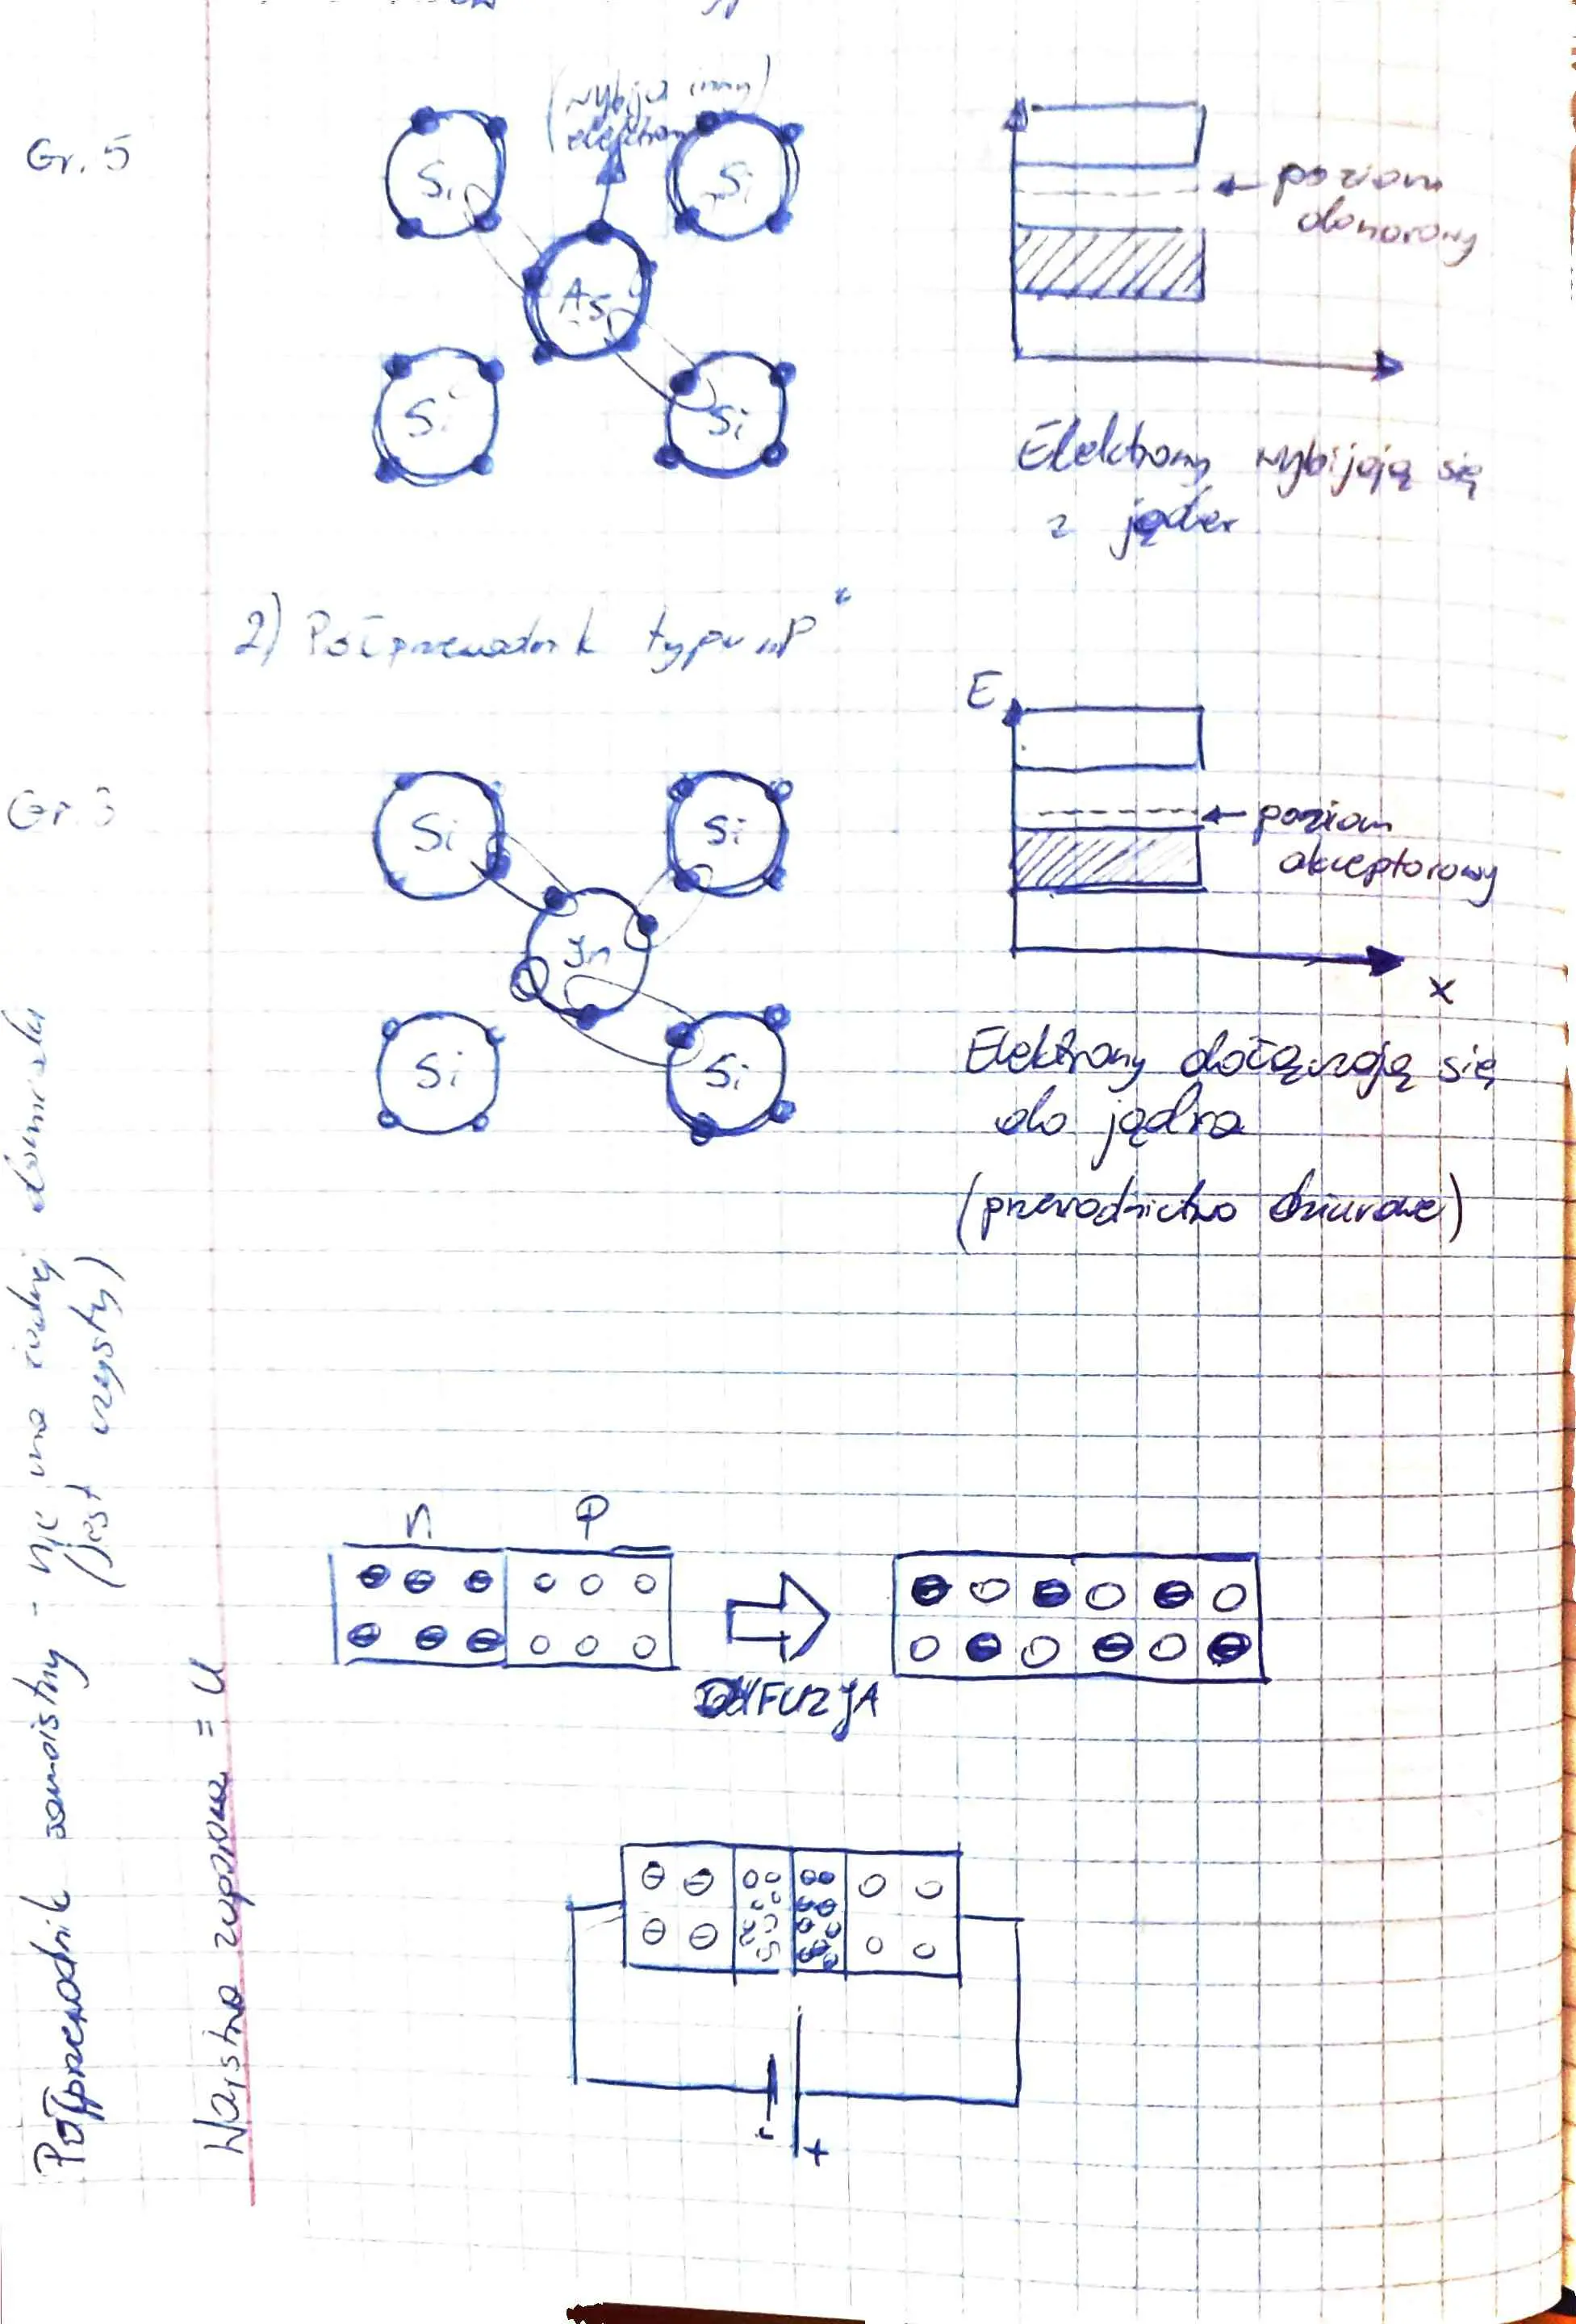 Gr. 5
(wybija inny
elektron)
Si
Si
As
Si
Si
poziom
donorowy
Elektrony wybijają się
z jąder
2) Półprzewodnik typu „P"
Gr. 3
Si
Si
Jn
Si
Si
E
poziom
akceptorowy
x
Elektrony dołączają się
do jądra
(przewodnictwo dziurowe)
n P
DYFUZJA
- +
Półprzewodnik samoistny - nie ma żadnej domieszki
(jest czysty)
Warstwa zaporowa = U